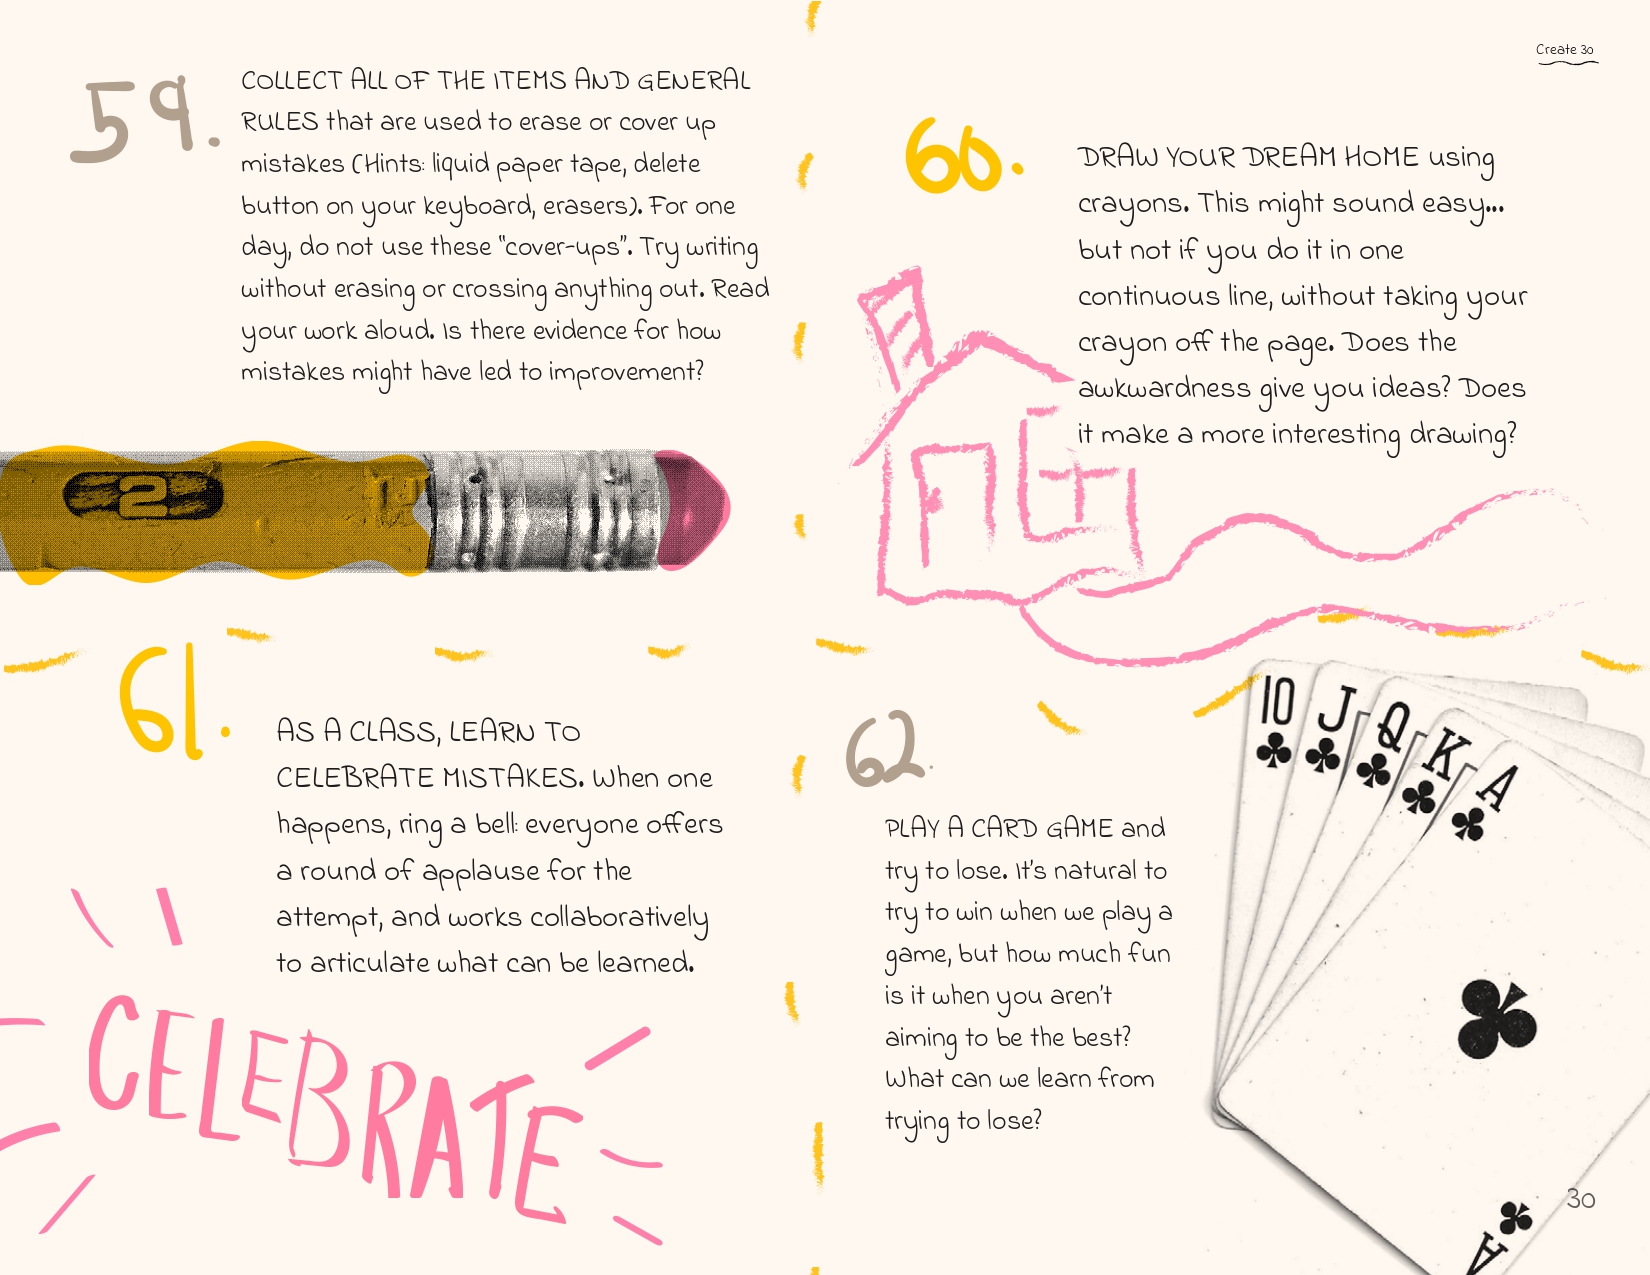 Create 30
59.
COLLECT ALL OF THE ITEMS AND GENERAL
RULES that are used to erase or cover up
mistakes (Hints: liquid paper tape, delete
button on your keyboard, erasers). For one
day, do not use these "cover-ups". Try writing
without erasing or crossing anything out. Read
your work aloud. Is there evidence for how
mistakes might have led to improvement?
2
60.
DRAW YOUR DREAM HOME using
crayons. This might sound easy...
but not if you do it in one
continuous line, without taking your
crayon off the page. Does the
awkwardness give you ideas? Does
it make a more interesting drawing?
61.
AS A CLASS, LEARN TO
CELEBRATE MISTAKES. When one
happens, ring a bell: everyone offers
a round of applause for the
attempt, and works collaboratively
to articulate what can be learned.
CELEBRATE
62.
PLAY A CARD GAME and
try to lose. It's natural to
try to win when we play a
game, but how much fun
is it when you aren't
aiming to be the best?
What can we learn from
trying to lose?
10 J Q K A
A
30